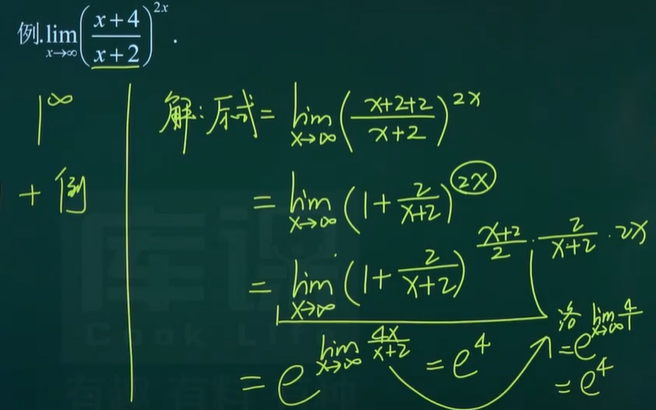 例.lim_{x→∞}((x+4)/(x+2))^{2x}.
1^∞
+ 例
解:原式= lim_{x→∞}((x+2+2)/(x+2))^{2x}
= lim_{x→∞}(1+2/(x+2))^{2x}
= lim_{x→∞}(1+2/(x+2))^{(x+2)/2 · 2/(x+2) · 2x}
= e^{lim_{x→∞} 4x/(x+2)} = e^4
洛 = e^{lim_{x→∞} 4/1}
= e^4